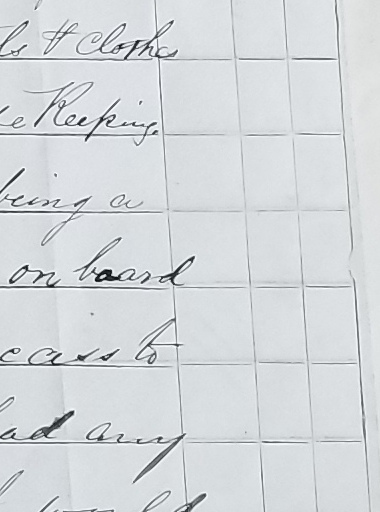 ls & clothes
e Keeping.
being a
on board
cass to
ad any
would